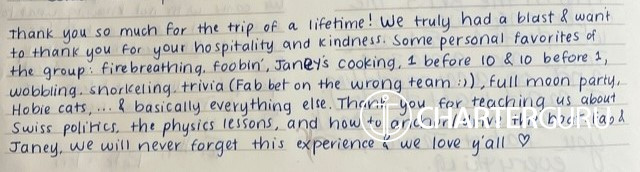 Thank you so much for the trip of a lifetime! We truly had a blast & want
to thank you for your hospitality and kindness. Some personal favorites of
the group: firebreathing, foobin', Janey's cooking, 1 before 10 & 10 before 1,
wobbling, snorkeling, trivia (Fab bet on the wrong team :)), full moon party,
Hobie cats, ... & basically everything else. Thank you for teaching us about
Swiss politics, the physics lessons, and how to anchor the
Janey, we will never forget this experience & we love y'all ♡
CHARTERGURU